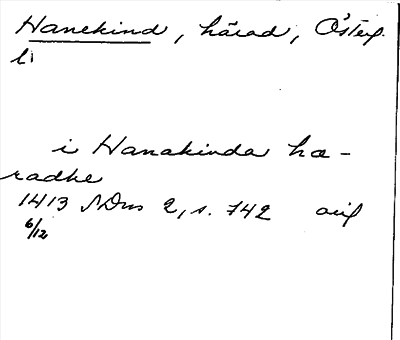 Hanekind, härad, Österg.
li
i Hanakinda hæ-
radhe
1413 SDns 2, s. 742 avs
6/12